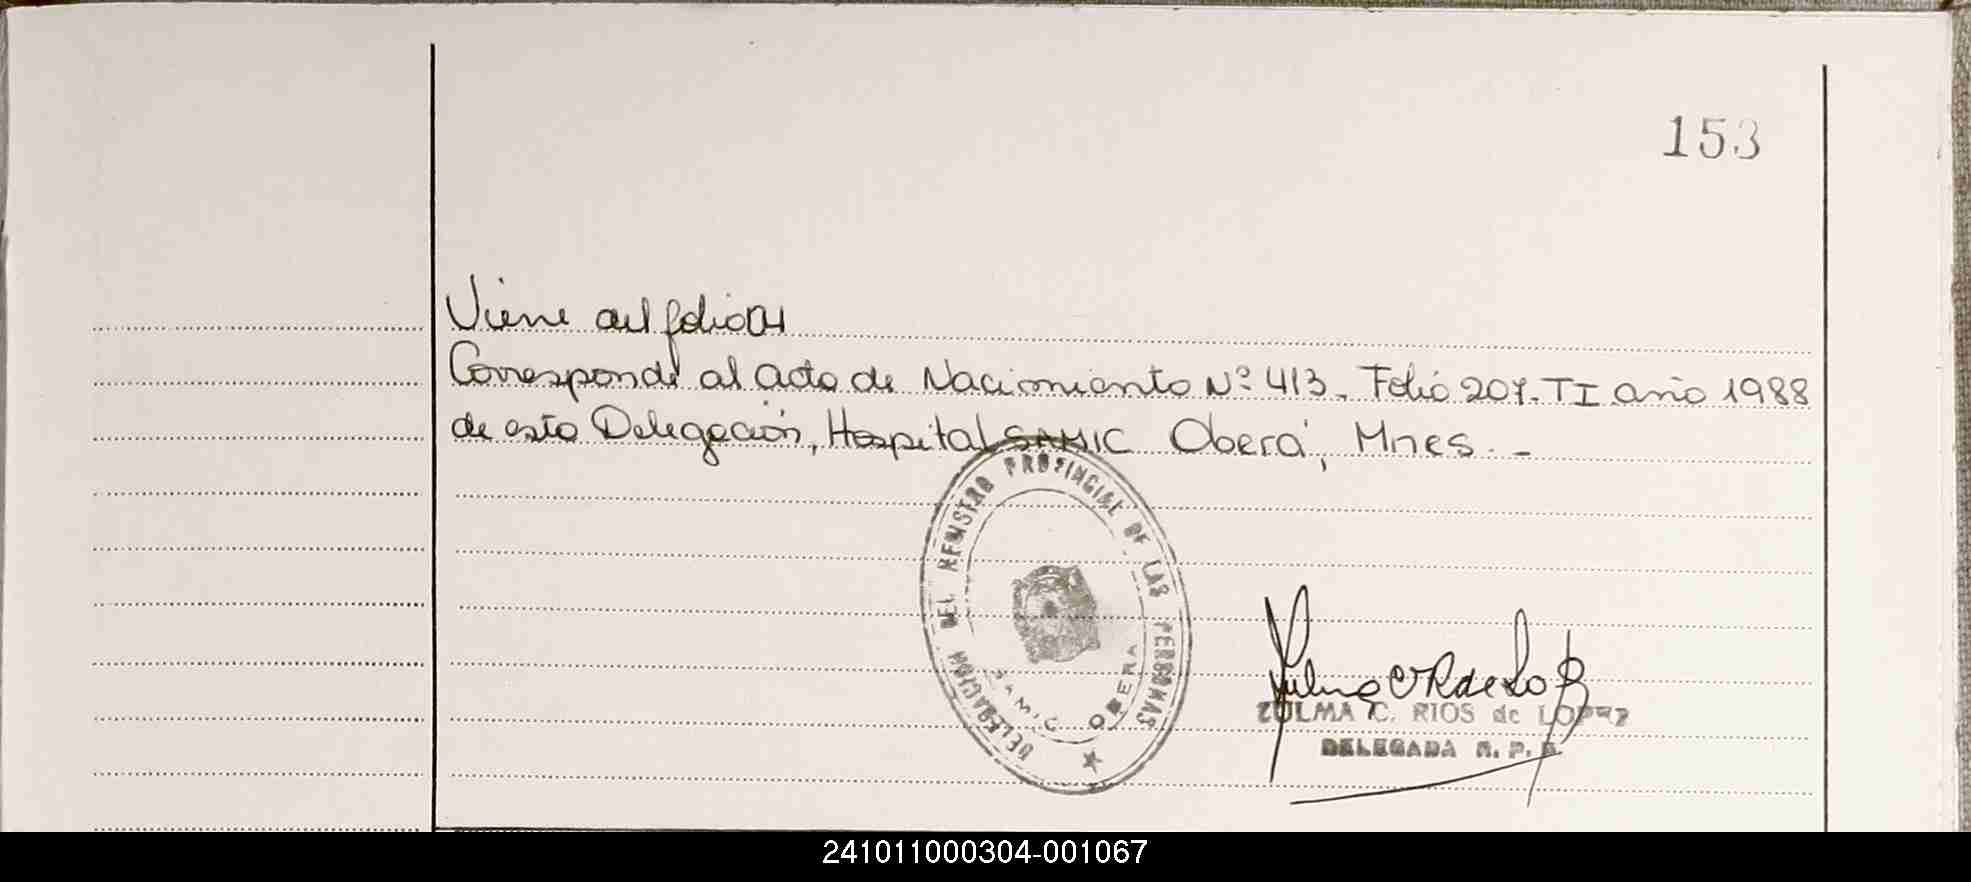 153
Viene del folio
Corresponde al acta de Nacimiento Nº 413. Folio 207. TI año 1988
de esta Delegación, Hospital SAMIC Oberá, Mnes. -
DELEGACION DEL REGISTRO PROVINCIAL DE LAS PERSONAS
SAMIC OBERA
ZULMA C. RIOS de LOPEZ
DELEGADA R. P. P.
241011000304-001067